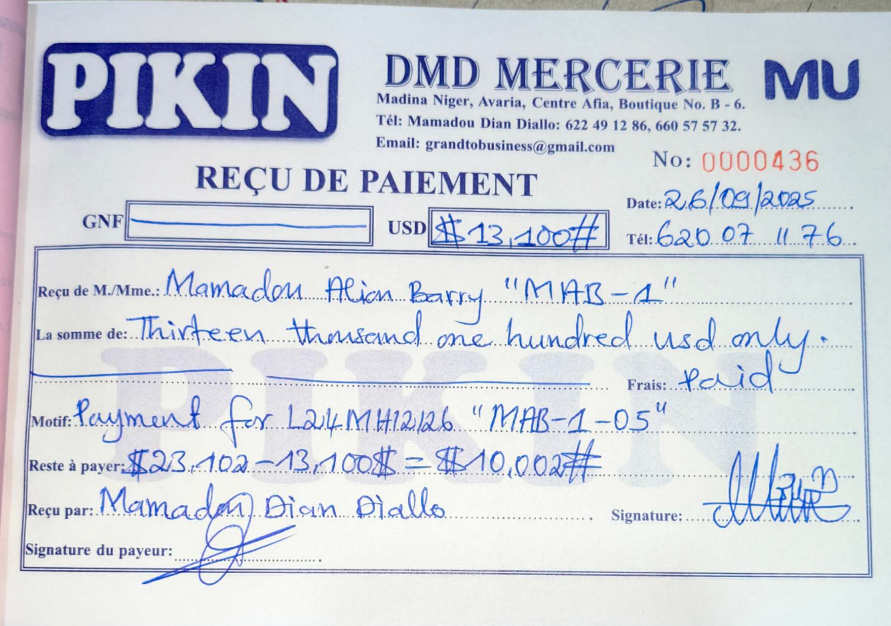 PIKIN
DMD MERCERIE
MU
Madina Niger, Avaria, Centre Afia, Boutique No. B - 6.
Tél: Mamadou Dian Diallo: 622 49 12 86, 660 57 57 32.
Email: grandtobusiness@gmail.com
No: 0000436
REÇU DE PAIEMENT
Date: 26/09/2025
GNF
USD $13,100#
Tél: 620 07 11 76
Reçu de M./Mme.: Mamadou Alion Barry "MAB-1"
La somme de: Thirteen thousand one hundred usd only.
Frais: Paid
Motif: Payment for L24MH12126 "MAB-1-05"
Reste à payer: $23,102-13,100$ = $10,002#
Reçu par: Mamadou Dian Diallo
Signature:
Signature du payeur:
PIKIN